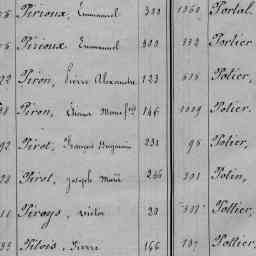 Périoux, Emmanuel 300 1060 Portal.
Périoux, Emmanuel 300 332 Portier
Piron, Pierre Alexandre 123 Potier,
Piron, 146 1009 Potier.
Pirot, François Benjamin 231 98 Potier,
Pirot, Joseph Marie 236 301 Potin,
Piroys, Victor 20 Pottier,
Pitois, Pierre 166 137 Pottier,